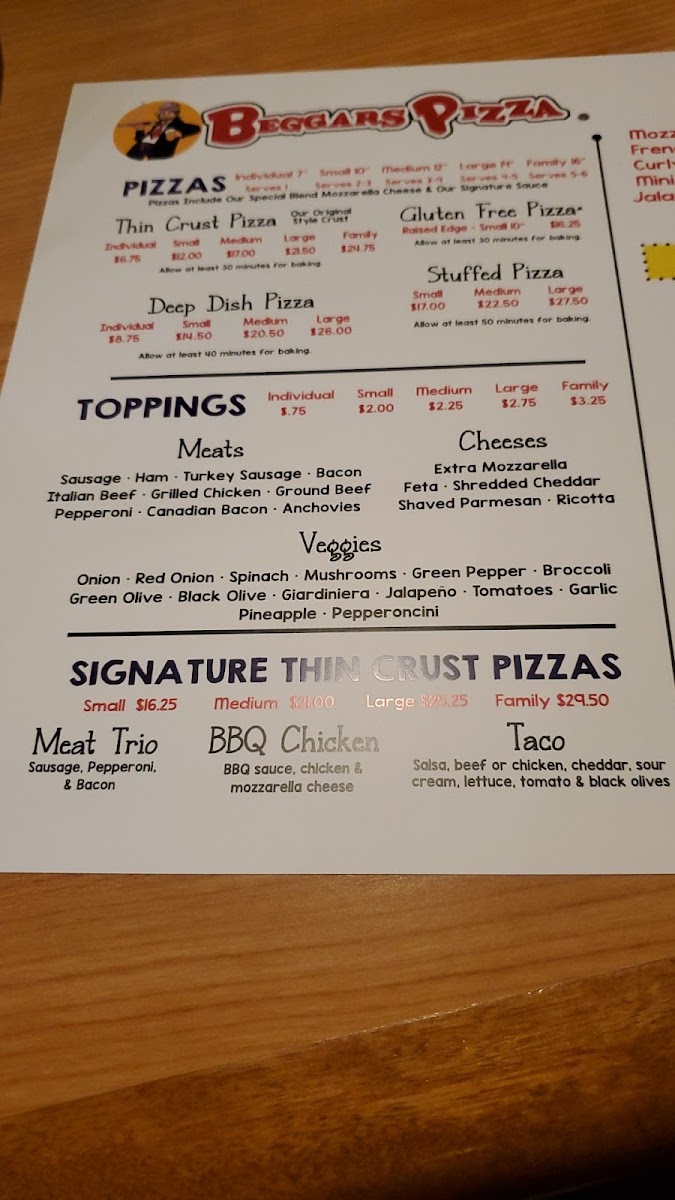 BEGGARS PIZZA
PIZZAS
Individual 7" Small 10" Medium 12" Large 14" Family 16"
Serves 1 Serves 2-3 Serves 3-4 Serves 4-5 Serves 5-6
Pizzas Include Our Special Blend Mozzarella Cheese & Our Signature Sauce
Thin Crust Pizza Our Original Style Crust
Individual Small Medium Large Family
$6.75 $12.00 $17.00 $21.50 $24.75
Allow at least 30 minutes for baking.
Gluten Free Pizza*
Raised Edge - Small 10" $16.25
Allow at least 30 minutes for baking.
Deep Dish Pizza
Individual Small Medium Large
$8.75 $14.50 $20.50 $26.00
Allow at least 40 minutes for baking.
Stuffed Pizza
Small Medium Large
$17.00 $22.50 $27.50
Allow at least 50 minutes for baking.
TOPPINGS
Individual Small Medium Large Family
$.75 $2.00 $2.25 $2.75 $3.25
Meats
Sausage · Ham · Turkey Sausage · Bacon
Italian Beef · Grilled Chicken · Ground Beef
Pepperoni · Canadian Bacon · Anchovies
Cheeses
Extra Mozzarella
Feta · Shredded Cheddar
Shaved Parmesan · Ricotta
Veggies
Onion · Red Onion · Spinach · Mushrooms · Green Pepper · Broccoli
Green Olive · Black Olive · Giardiniera · Jalapeño · Tomatoes · Garlic
Pineapple · Pepperoncini
SIGNATURE THIN CRUST PIZZAS
Small $16.25 Medium $21.00 Large $25.25 Family $29.50
Meat Trio
Sausage, Pepperoni,
& Bacon
BBQ Chicken
BBQ sauce, chicken &
mozzarella cheese
Taco
Salsa, beef or chicken, cheddar, sour
cream, lettuce, tomato & black olives
Mozz
Fren
Curl
Mini
Jala